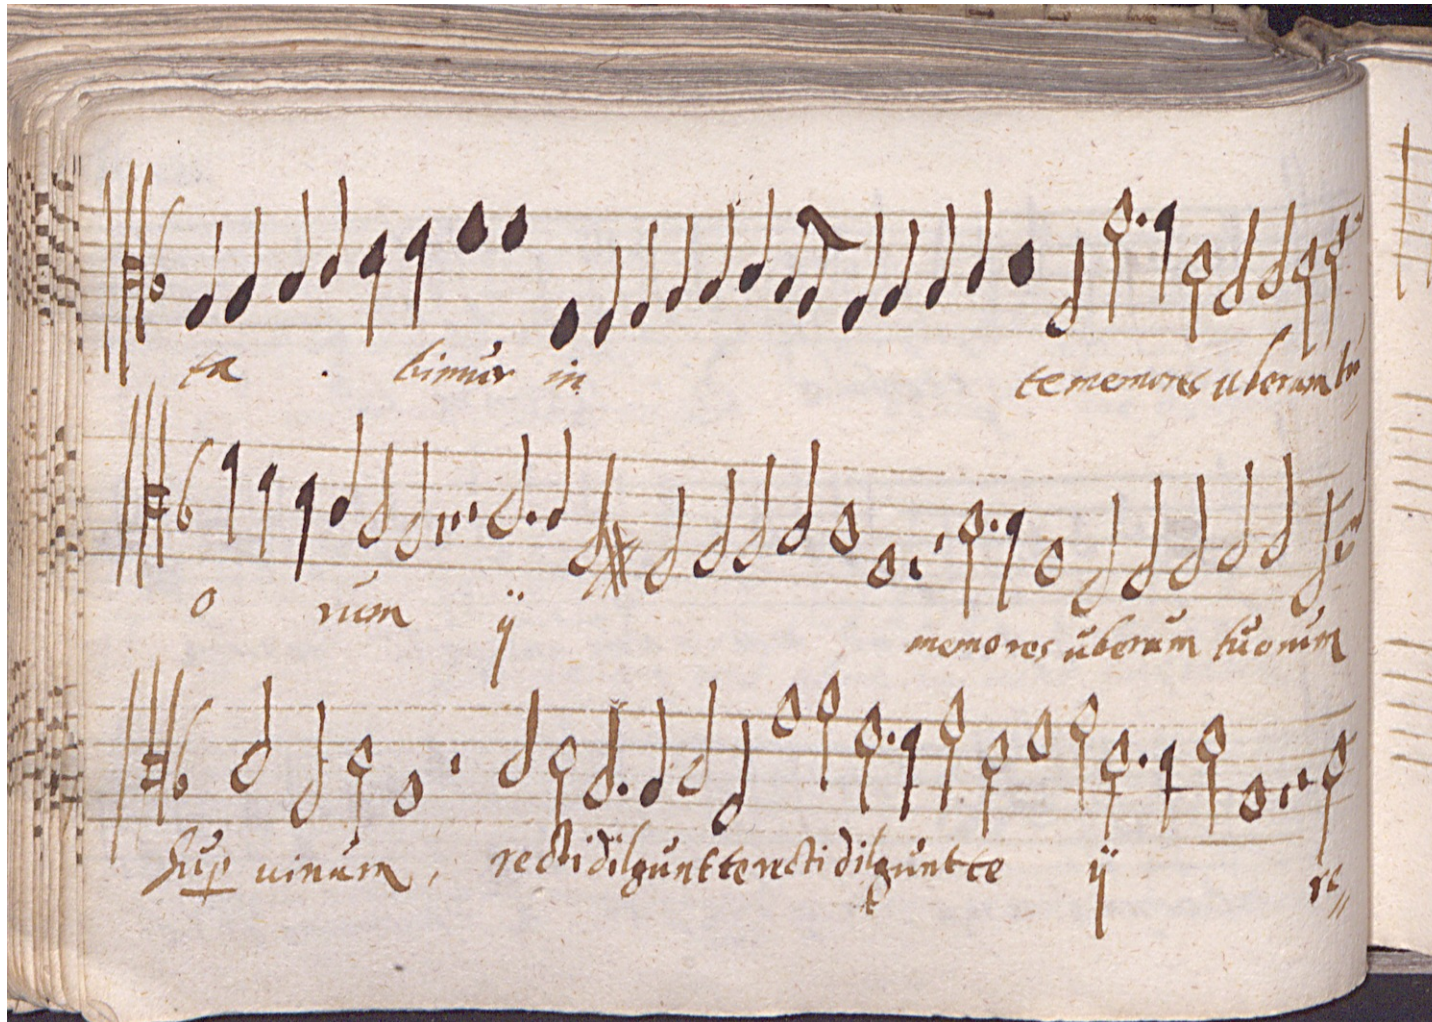 ta bimur in te memores uberum tu
o rum ij memores uberum tuorum
sup uinum, recti dilgunt te recti dilgunt te ij re